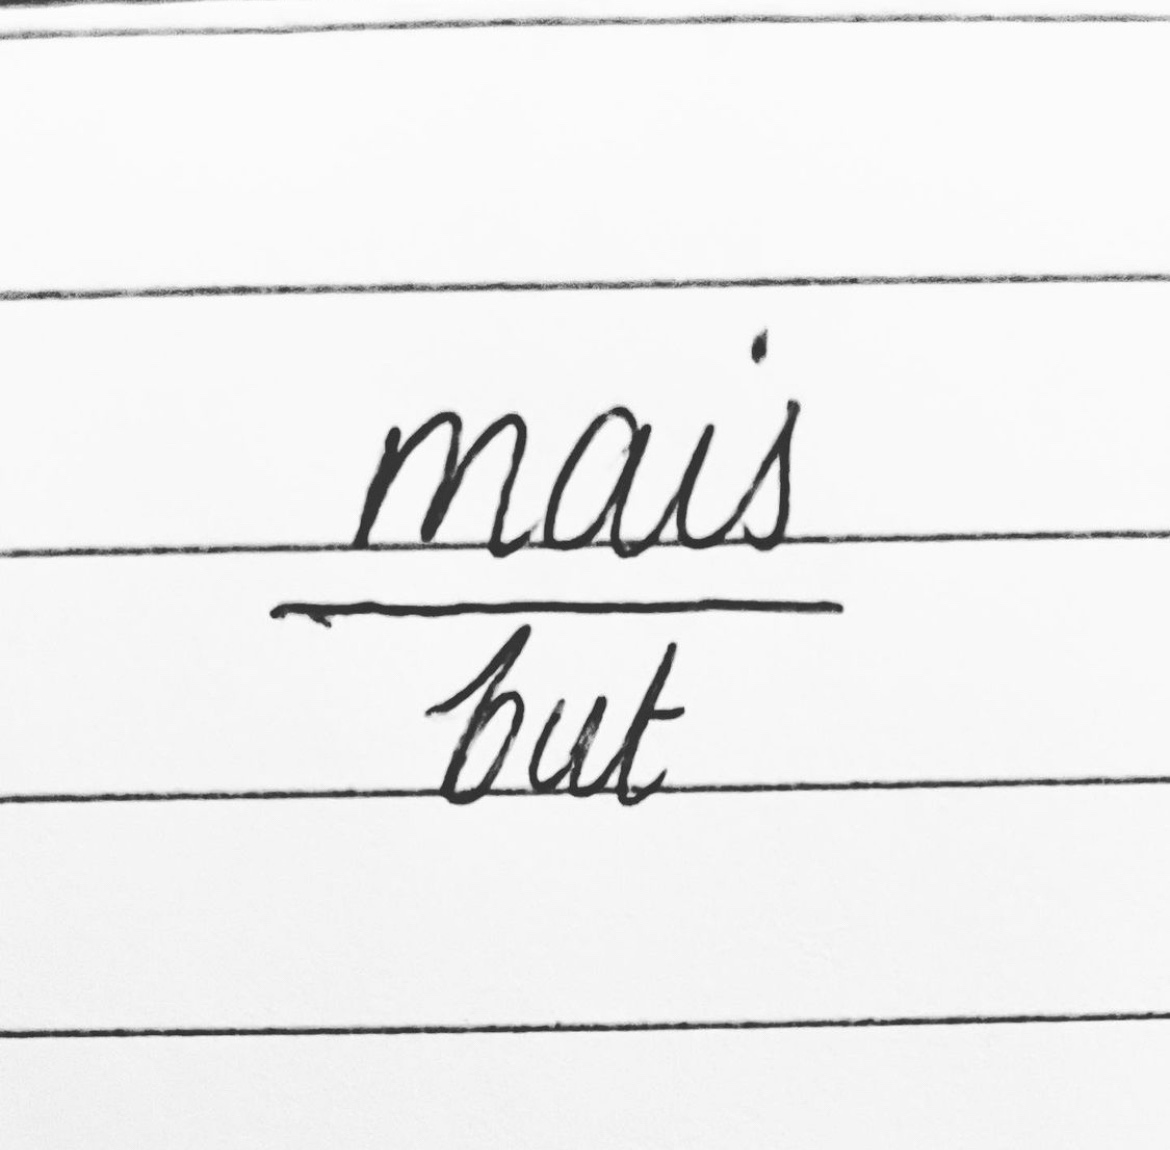 mais
but